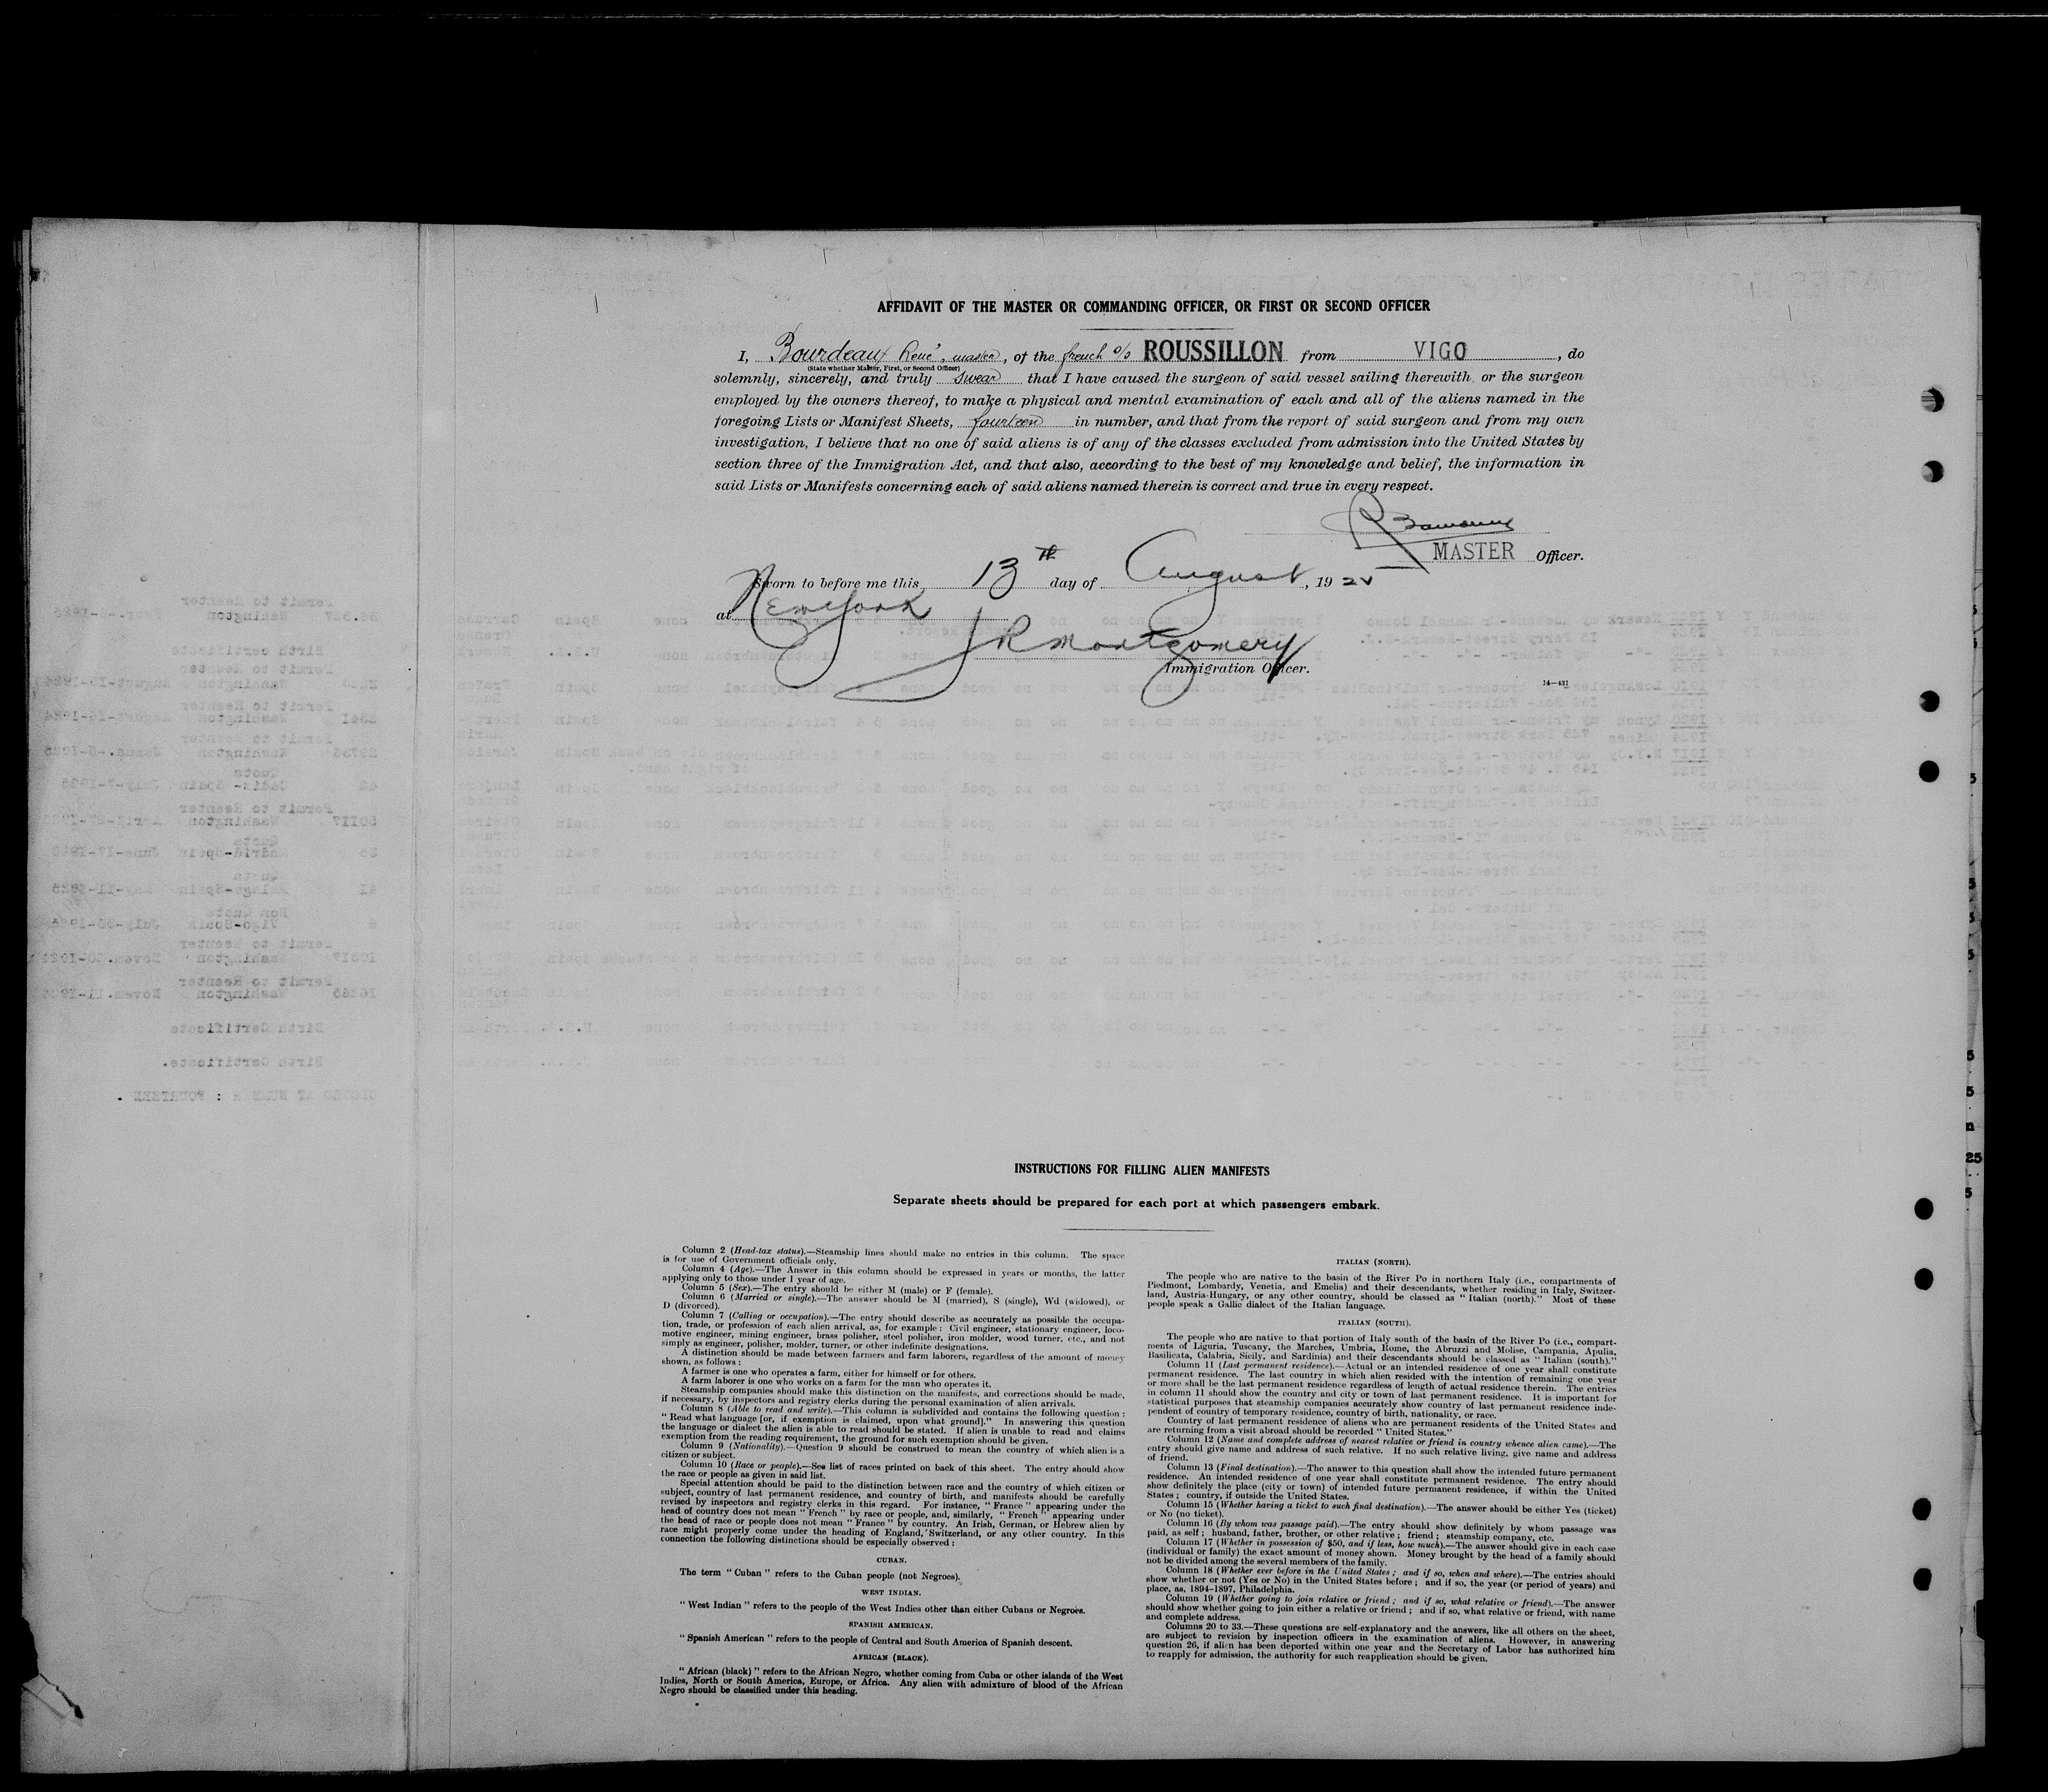 AFFIDAVIT OF THE MASTER OR COMMANDING OFFICER, OR FIRST OR SECOND OFFICER
I, Bourdeaux René, master, of the french s/s ROUSSILLON from VIGO, do
(State whether Master, First, or Second Officer)
solemnly, sincerely, and truly swear that I have caused the surgeon of said vessel sailing therewith, or the surgeon
employed by the owners thereof, to make a physical and mental examination of each and all of the aliens named in the
foregoing Lists or Manifest Sheets, fourteen in number, and that from the report of said surgeon and from my own
investigation, I believe that no one of said aliens is of any of the classes excluded from admission into the United States by
section three of the Immigration Act, and that also, according to the best of my knowledge and belief, the information in
said Lists or Manifests concerning each of said aliens named therein is correct and true in every respect.
MASTER Officer.
Sworn to before me this 13th day of August, 1925
at New York
J R Montgomery
Immigration Officer.
14—431
INSTRUCTIONS FOR FILLING ALIEN MANIFESTS
Separate sheets should be prepared for each port at which passengers embark.
Column 2 (Head-tax status).—Steamship lines should make no entries in this column. The space
is for use of Government officials only.
Column 4 (Age).—The Answer in this column should be expressed in years or months, the latter
applying only to those under 1 year of age.
Column 5 (Sex).—The entry should be either M (male) or F (female).
Column 6 (Married or single).—The answer should be M (married), S (single), Wd (widowed), or
D (divorced).
Column 7 (Calling or occupation).—The entry should describe as accurately as possible the occupa-
tion, trade, or profession of each alien arrival, as, for example: Civil engineer, stationary engineer, loco-
motive engineer, mining engineer, brass polisher, steel polisher, iron molder, wood turner, etc., and not
simply as engineer, polisher, molder, turner, or other indefinite designations.
A distinction should be made between farmers and farm laborers, regardless of the amount of money
shown, as follows:
A farmer is one who operates a farm, either for himself or for others.
A farm laborer is one who works on a farm for the man who operates it.
Steamship companies should make this distinction on the manifests, and corrections should be made,
if necessary, by inspectors and registry clerks during the personal examination of alien arrivals.
Column 8 (Able to read and write).—This column is subdivided and contains the following question:
"Read what language [or, if exemption is claimed, upon what ground]." In answering this question
the language or dialect the alien is able to read should be stated. If alien is unable to read and claims
exemption from the reading requirement, the ground for such exemption should be given.
Column 9 (Nationality).—Question 9 should be construed to mean the country of which alien is a
citizen or subject.
Column 10 (Race or people).—See list of races printed on back of this sheet. The entry should show
the race or people as given in said list.
Special attention should be paid to the distinction between race and the country of which citizen or
subject, country of last permanent residence, and country of birth, and manifests should be carefully
revised by inspectors and registry clerks in this regard. For instance, "France" appearing under the
head of country does not mean "French" by race or people, and, similarly, "French" appearing under
the head of race or people does not mean "France" by country. An Irish, German, or Hebrew alien by
race might properly come under the heading of England, Switzerland, or any other country. In this
connection the following distinctions should be especially observed:
CUBAN.
The term "Cuban" refers to the Cuban people (not Negroes).
WEST INDIAN.
"West Indian" refers to the people of the West Indies other than either Cubans or Negroes.
SPANISH AMERICAN.
"Spanish American" refers to the people of Central and South America of Spanish descent.
AFRICAN (BLACK).
"African (black)" refers to the African Negro, whether coming from Cuba or other islands of the West
Indies, North or South America, Europe, or Africa. Any alien with admixture of blood of the African
Negro should be classified under this heading.
ITALIAN (NORTH).
The people who are native to the basin of the River Po in northern Italy (i.e., compartments of
Piedmont, Lombardy, Venetia, and Emelia) and their descendants, whether residing in Italy, Switzer-
land, Austria-Hungary, or any other country, should be classed as "Italian (north)." Most of these
people speak a Gallic dialect of the Italian language.
ITALIAN (SOUTH).
The people who are native to that portion of Italy south of the basin of the River Po (i.e., compart-
ments of Liguria, Tuscany, the Marches, Umbria, Rome, the Abruzzi and Molise, Campania, Apulia,
Basilicata, Calabria, Sicily, and Sardinia) and their descendants should be classed as "Italian (south)."
Column 11 (Last permanent residence).—Actual or an intended residence of one year shall constitute
permanent residence. The last country in which alien resided with the intention of remaining one year
or more shall be the last permanent residence regardless of length of actual residence therein. The entries
in column 11 should show the country and city or town of last permanent residence. It is important for
statistical purposes that steamship companies accurately show country of last permanent residence inde-
pendent of country of temporary residence, country of birth, nationality, or race.
Country of last permanent residence of aliens who are permanent residents of the United States and
are returning from a visit abroad should be recorded "United States."
Column 12 (Name and complete address of nearest relative or friend in country whence alien came).—The
entry should give name and address of such relative. If no such relative living, give name and address
of friend.
Column 13 (Final destination).—The answer to this question shall show the intended future permanent
residence. An intended residence of one year shall constitute permanent residence. The entry should
show definitely the place (city or town) of intended future permanent residence, if within the United
States; country, if outside the United States.
Column 15 (Whether having a ticket to such final destination).—The answer should be either Yes (ticket)
or No (no ticket).
Column 16 (By whom was passage paid).—The entry should show definitely by whom passage was
paid, as self; husband, father, brother, or other relative; friend; steamship company, etc.
Column 17 (Whether in possession of $50, and if less, how much).—The answer should give in each case
(individual or family) the exact amount of money shown. Money brought by the head of a family should
not be divided among the several members of the family.
Column 18 (Whether ever before in the United States; and if so, when and where).—The entries should
show whether or not (Yes or No) in the United States before; and if so, the year (or period of years) and
place, as, 1894-1897, Philadelphia.
Column 19 (Whether going to join relative or friend; and if so, what relative or friend).—The answer
should show whether going to join either a relative or friend; and if so, what relative or friend, with name
and complete address.
Columns 20 to 33.—These questions are self-explanatory and the answers, like all others on the sheet,
are subject to revision by inspection officers in the examination of aliens. However, in answering
question 26, if alien has been deported within one year and the Secretary of Labor has authorized him
to reapply for admission, the authority for such reapplication should be given.